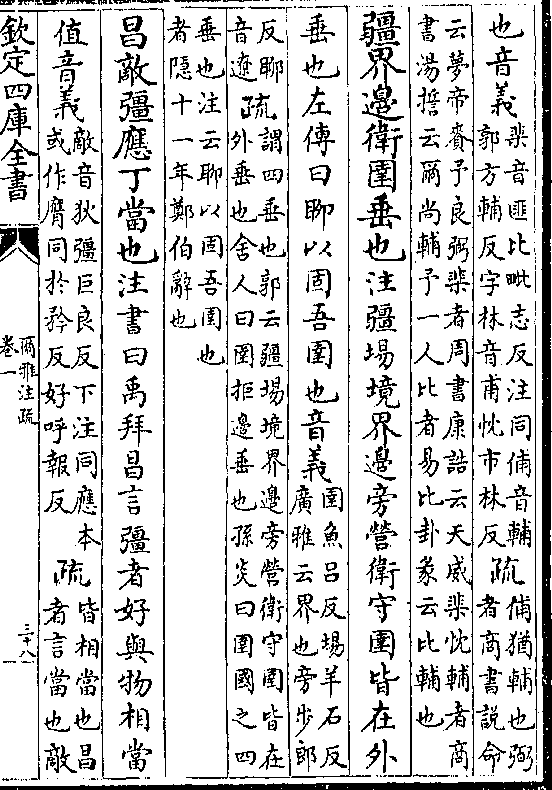 也音義棐音匪比毗志反注同俌音輔
郭方輔反字林音甫忱市林反疏俌猶輔也弼
者商書說命
云夢帝賚予良弼棐者周書康誥云天威棐忱輔者商
書湯誓云爾尚輔予一人比者易比卦彖云比輔也
疆界邊衛圉垂也注疆埸境界邊旁營衛守圉皆在外
垂也左傳曰聊以固吾圉也音義圉魚吕反埸羊石反
廣雅云界也旁步郎
反聊
音遼疏謂四垂也郭云疆埸境界邊旁營衛守圉皆在
外垂也舍人曰圉拒邊垂也孫炎曰圉國之四
垂也注云聊以固吾圉也
者隱十一年鄭伯辭也
昌敵彊應丁當也注書曰禹拜昌言彊者好與物相當
值音義敵音狄彊巨良反下注同應本
或作膺同於矜反好呼報反疏皆相當也昌
者言當也敵
欽定四庫全書
爾雅注疏
卷一
三十八